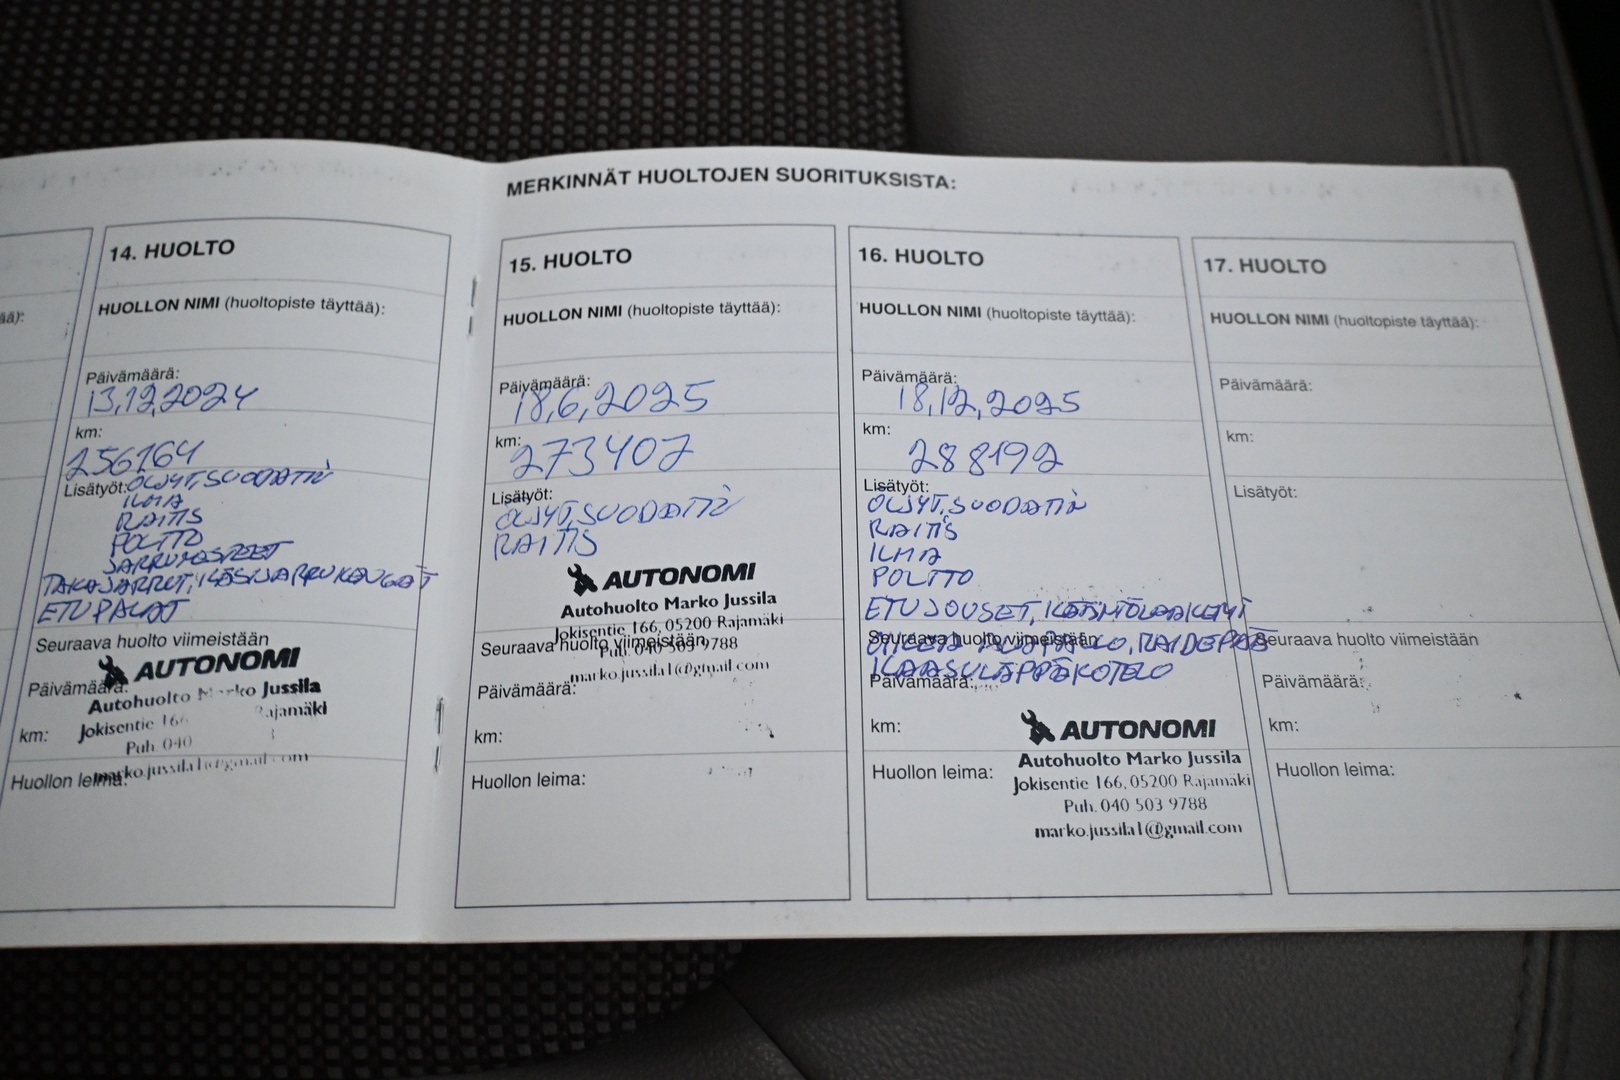 MERKINNÄT HUOLTOJEN SUORITUKSISTA:
ää):
14. HUOLTO
HUOLLON NIMI (huoltopiste täyttää):
Päivämäärä:
13.12.2024
km:
256164
Lisätyöt: ÖLJYT, SUODATIN
ILMA
RAITIS
POLTTO
JARRUNESTEET
TAKAJARRUT, KÄSIJARRUKENGÄT
ETUPALAT
Seuraava huolto viimeistään
AUTONOMI
Päivämäärä:
Autohuolto Marko Jussila
Jokisentie 166 Rajamäki
km:
Puh. 040
Huollon leima:
marko.jussila1@gmail.com
15. HUOLTO
HUOLLON NIMI (huoltopiste täyttää):
Päivämäärä:
18,6,2025
km:
273407
Lisätyöt:
ÖLJYT, SUODATIN
RAITIS
AUTONOMI
Autohuolto Marko Jussila
Jokisentie 166, 05200 Rajamäki
Seuraava huolto viimeistään
Puh. 040 503 9788
marko.jussila1@gmail.com
Päivämäärä:
km:
Huollon leima:
16. HUOLTO
HUOLLON NIMI (huoltopiste täyttää):
Päivämäärä:
18,12,2025
km:
288192
Lisätyöt:
ÖLJYT, SUODATIN
RAITIS
ILMA
POLTTO
ETUJOUSET,
Seuraava huolto viimeistään
RAIDEPÄÄ
KAASULÄPPÄKOTELO
Päivämäärä:
km:
AUTONOMI
Autohuolto Marko Jussila
Huollon leima:
Jokisentie 166, 05200 Rajamäki
Puh. 040 503 9788
marko.jussila1@gmail.com
17. HUOLTO
HUOLLON NIMI (huoltopiste täyttää):
Päivämäärä:
km:
Lisätyöt:
Seuraava huolto viimeistään
Päivämäärä:
km:
Huollon leima: